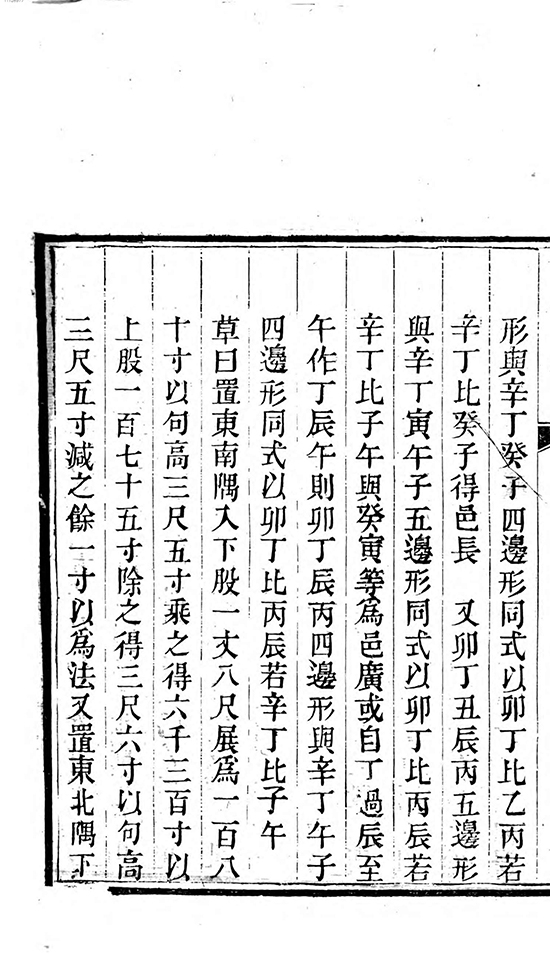 形與辛丁癸子四邊形同式以卯丁比乙丙若
辛丁比癸子得邑長　又卯丁丑辰丙五邊形
與辛丁寅午子五邊形同式以卯丁比丙辰若
辛丁比子午與癸寅等爲邑廣或自丁過辰至
午作丁辰午則卯丁辰丙四邊形與辛丁午子
四邊形同式以卯丁比丙辰若辛丁比子午
草曰置東南隅入下股一丈八尺展爲一百八
十寸以句高三尺五寸乘之得六千三百寸以
上股一百七十五寸除之得三尺六寸以句高
三尺五寸減之餘一寸以爲法又置東北隅下